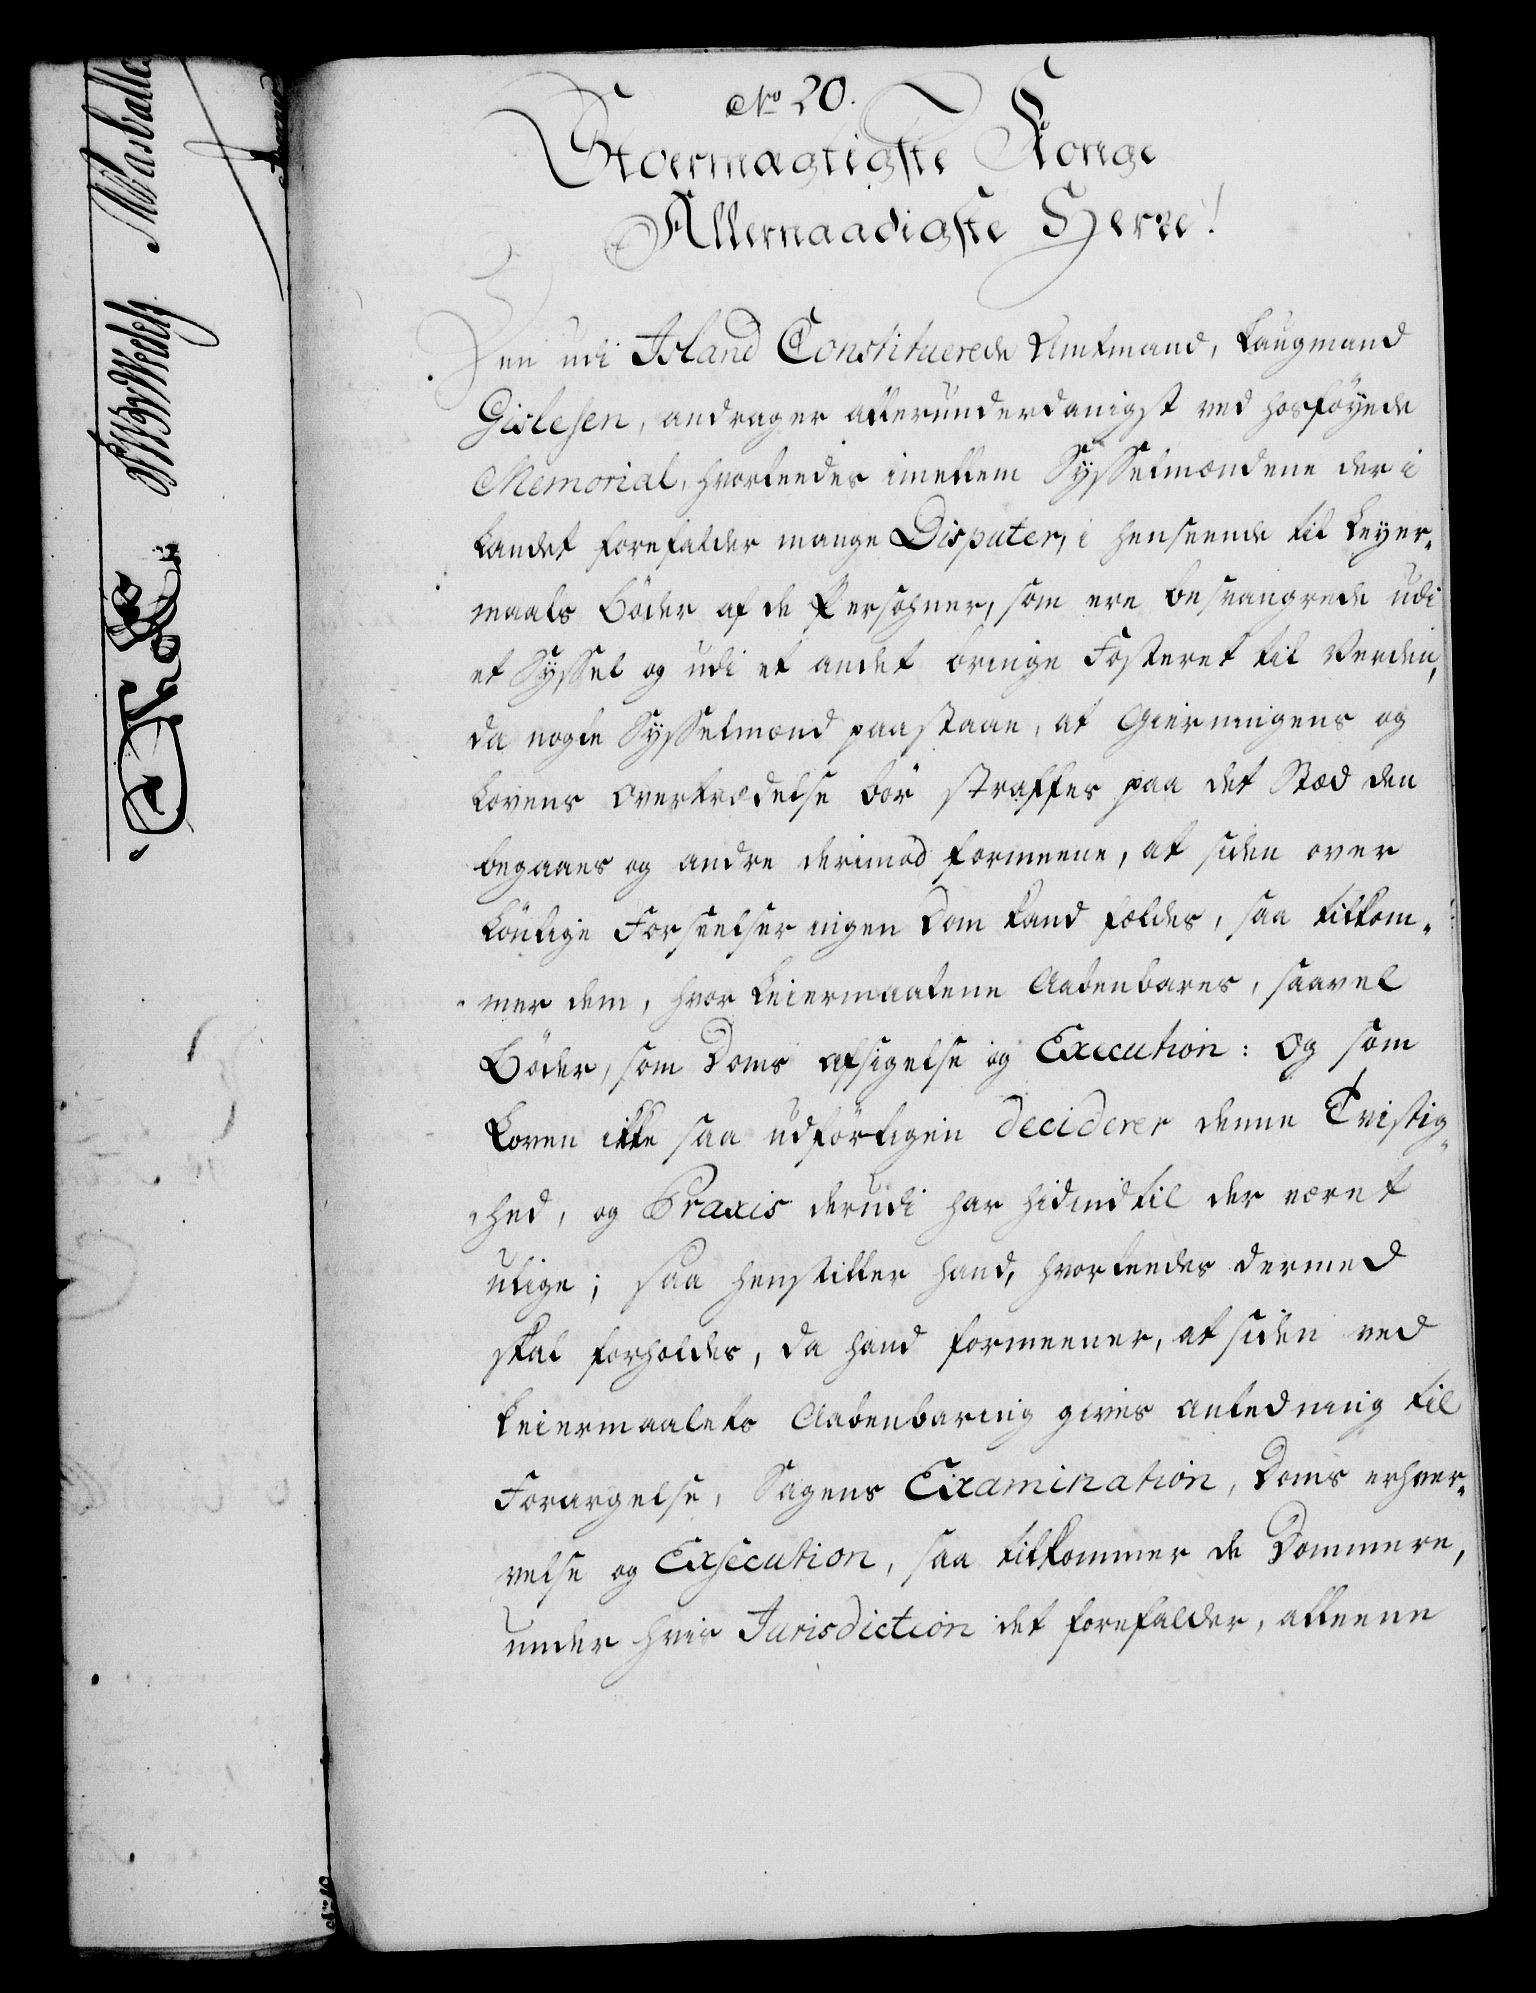 No 20.
Stoermægtigste Konge
Allernaadigste Herre!
Den udi Island Constituerede Amtmand, Laugmand
Gislesen, andrager allerunderdanigst ved hosföyede
Memorial, hvorleedes imellem Sysselmændene der i
Landet forefalder mange Disputer, i henseende til Leyer-
maals Böder af de Persohner, som ere besvangrede udi
et Syssel og udi et andet bringe Fosteret til Verden,
da nogle Sysselmænd paastaae, at Gierningens og
Lovens Overtrædelse bör straffes paa det Stæd den
begaaes og andre derimod formeene, at siden over
Lönlige Forseelser ingen Dom kand fældes, saa tilkom-
mer dem, hvor Leiermaalene Aabenbares, saavel
Böder, som Doms Afsigelse og Execution: Og som
Loven ikke saa udförligen deciderer denne Tvistig-
hed, og Praxis derudi har hidindtil der været
ulige; saa henstiller hand, hvorleedes dermed
skal forholdes, da hand formeener, at siden ved
Leiermaalets Aabenbaring gives anledning til
Forargelse, Sagens Examination, Doms erhver-
velse og Exsecution, saa tilkommer de Dommere,
under hvis Jurisdiction det forefalder, alleene